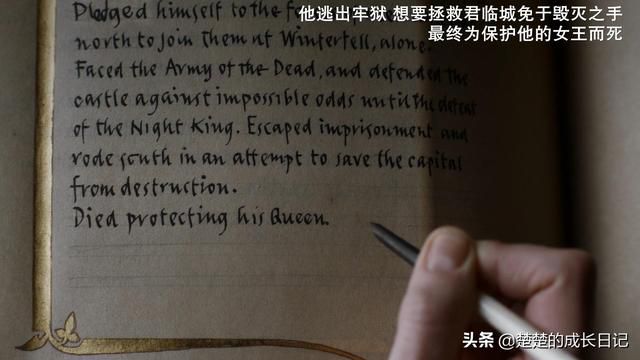 他逃出牢狱 想要拯救君临城免于毁灭之手
最终为保护他的女王而死
Pledged himself to the fo
north to join them at Winterfell, alone.
Faced the Army of the Dead, and defended the
castle against impossible odds until the defeat
of the Night King. Escaped imprisonment and
rode south in an attempt to save the capital
from destruction.
Died protecting his Queen.
头条 @楚楚的成长日记